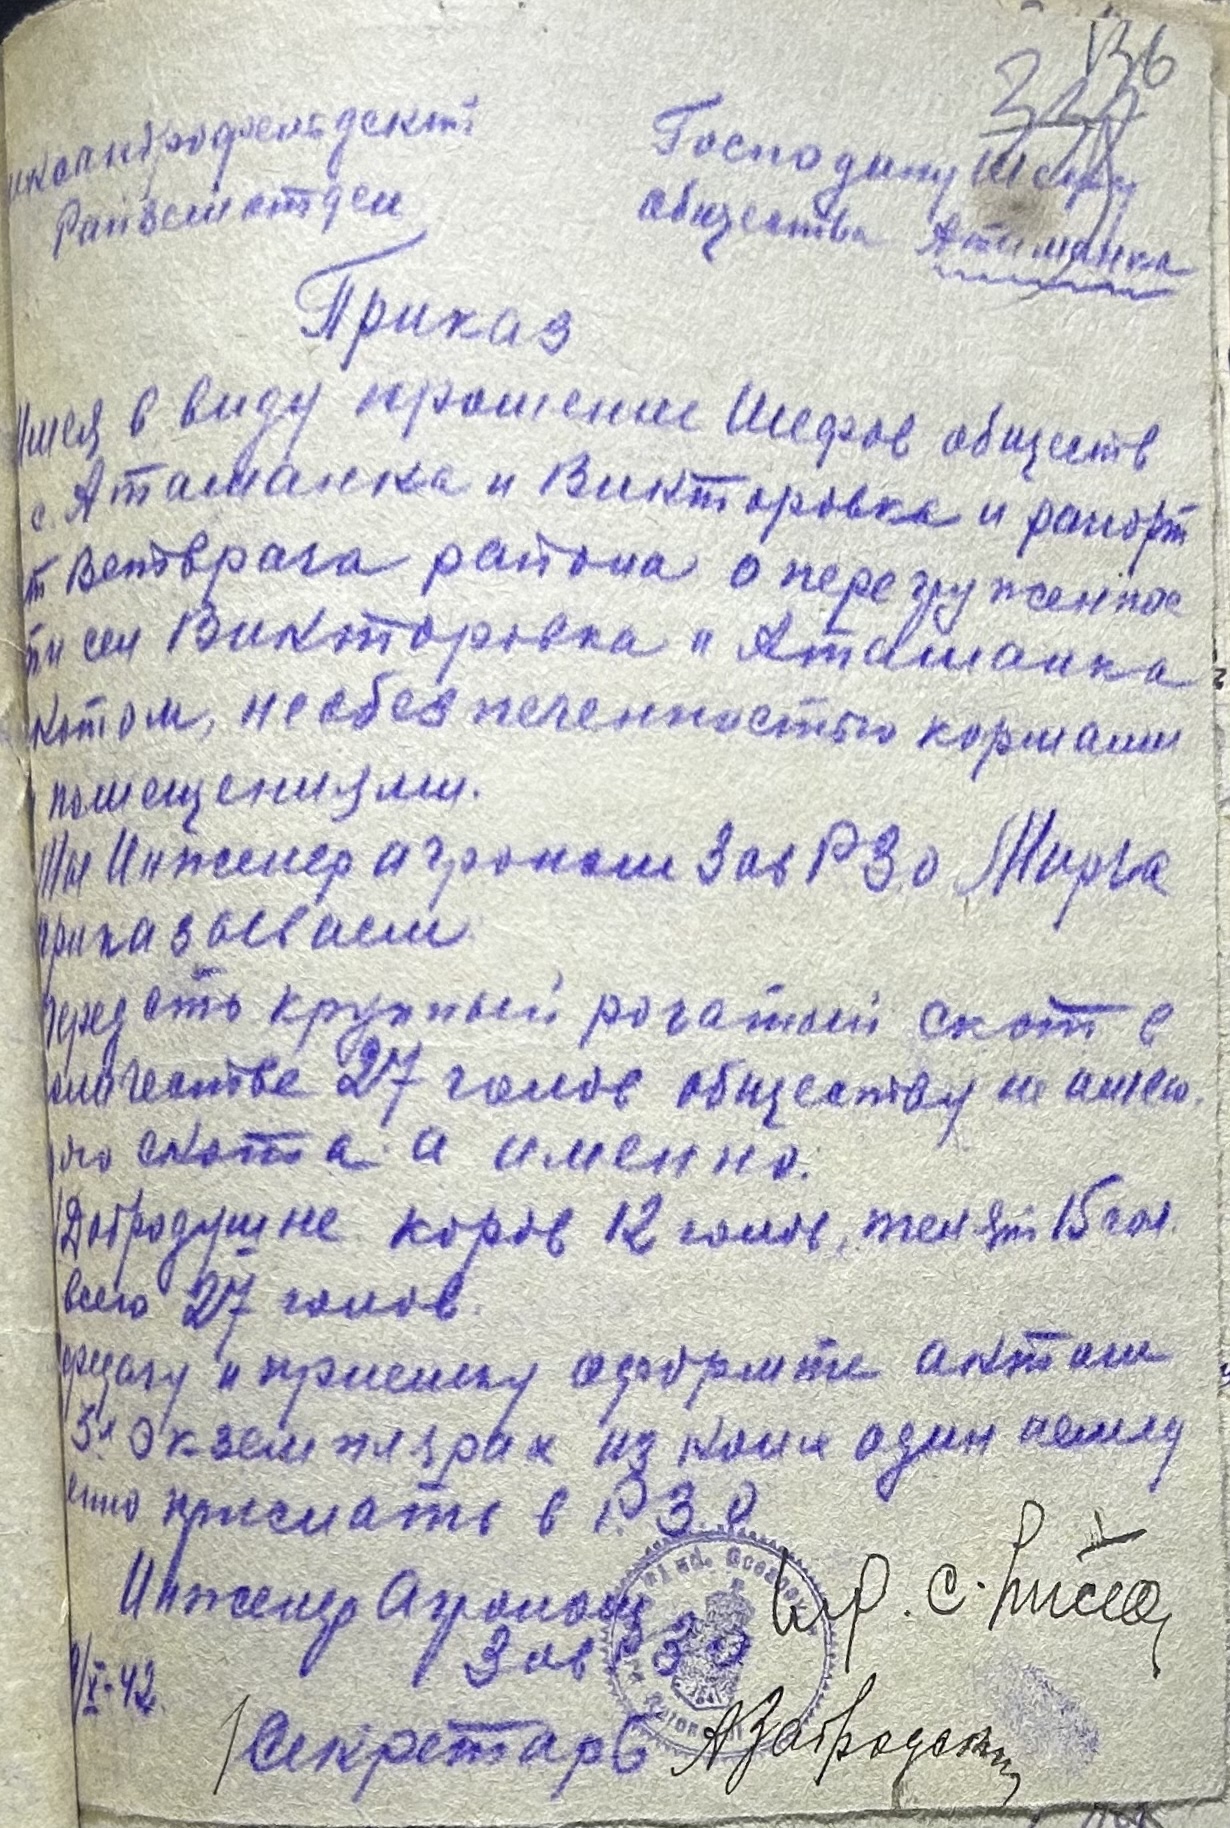 136
Райземотдел
Господину Шефу
общества Атаманка
Приказ
Имея в виду прошение Шефов обществ
с. Атаманка и Викторовка и рапорт
Ветврача района о перегруженнос
ти сел Викторовка и Атаманка
котом, необезпеченностью кормами
помещениями.
Мы Инженер агроном Зав РЗо Мирча
приказываем
передать крупный рогатый скот в
количестве 27 голов обществу не имею.
скота а именно.
Добродушне коров 12 голов, телят 15 гол.
всего 27 голов.
и приемку оформте актом
3х экземплярах из коих один немед
енно прислать в РЗО
Инженер Агроном
Зав РЗО
/X-42.
Секретарь